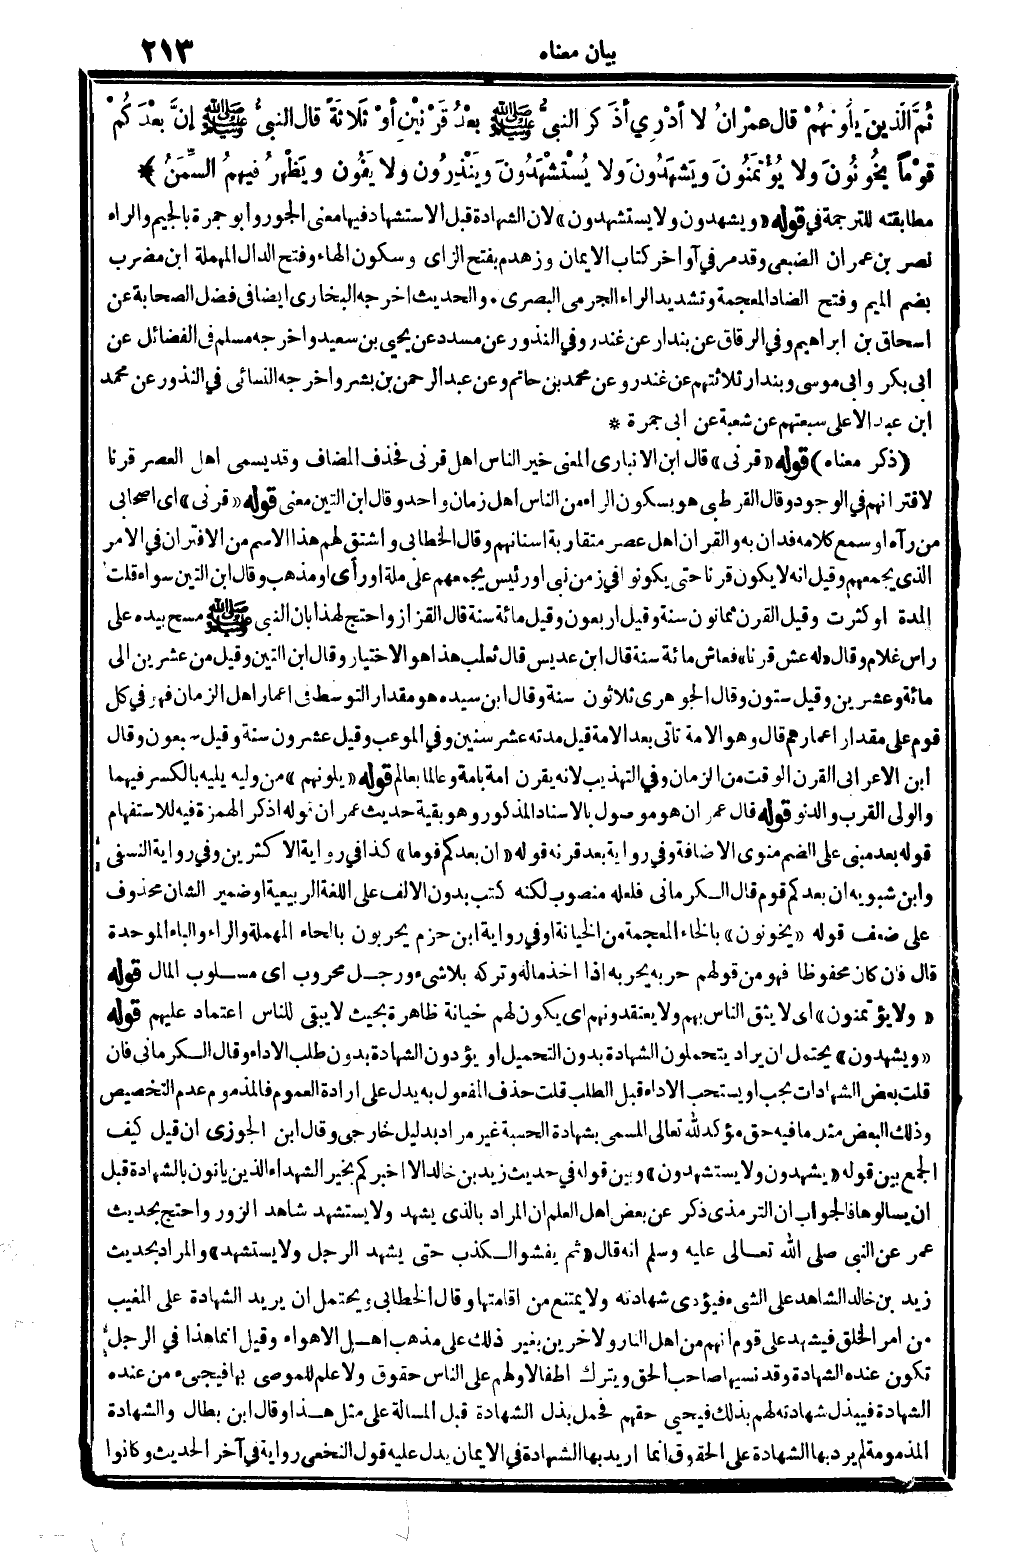 بيان معناه ٢١٣
ثُمَّ الَّذِينَ يَلُونَهُمْ قال عِمْرَانُ لا أدْرِي أذَكَرَ النبيُّ ﷺ بَعْدُ قَرْنَيْنِ أوْ ثَلَاثَةً قال النبيُّ ﷺ إنَّ بَعْدَكُمْ
قَوْمًا يَخُونُونَ ولا يُؤْتَمَنُونَ ويَشْهَدُونَ ولا يُسْتَشْهَدُونَ ويَنْذِرُون ولا يَفُون ويَظْهَرُ فيهِمُ السِّمَنُ ﴾
مطابقته للترجمة في قوله «ويشهدون ولا يستشهدون» لان الشهادة قبل الاستشهاد فيها معنى الجور وابو جمرة بالجيم والراء
نصر بن عمران الضبعى وقد مر في آواخر كتاب الايمان وزهدم بفتح الزاى وسكون الهاء وفتح الدال المهملة ابن مضرب
بضم الميم وفتح الضاد المعجمة وتشديد الراء الجرمى البصرى . والحديث اخرجه البخارى ايضا فى فضل الصحابة عن
اسحاق بن ابراهيم وفي الرقاق عن بندار عن غندر وفي النذور عن مسدد عن يحيى بن سعيد واخرجه مسلم فى الفضائل عن
ابى بكر وابى موسى وبندار ثلاثتهم عن غندر وعن محمد بن حاتم وعن عبد الرحمن بن بشر واخرجه النسائى في النذور عن محمد
ابن عبد الاعلى سبعتهم عن شعبة عن ابى جمرة *
(ذكر معناه) قوله «قرنى» قال ابن الانبارى المعنى خير الناس اهل قرنى فحذف المضاف وقد يسمى اهل العصر قرنا
لاقترانهم في الوجود وقال القرطبى هو بسكون الراء من الناس اهل زمان واحد وقال ابن التين معنى قوله «قرنى» اى اصحابى
من رآه او سمع كلامه فدان به والقران اهل عصر متقاربة اسنانهم وقال الخطابى واشتق لهم هذا الاسم من الاقتران في الامر
الذى يجمعهم وقيل انه لا يكون قرنا حتى يكونوا في زمن نبى او رئيس يجمعهم على ملة او رأى او مذهب وقال ابن التين سواء قلت
المدة او كثرت وقيل القرن ثمانون سنة وقيل اربعون وقيل مائة سنة قال القزاز واحتج لهذا بان النبى ﷺ مسح بيده على
راس غلام وقال «له عش قرنا» فعاش مائة سنة قال ابن عديس قال ثعلب هذا هو الاختيار وقال ابن التين وقيل من عشرين الى
مائة وعشرين وقيل ستون وقال الجوهرى ثلاثون سنة وقال ابن سيده هو مقدار التوسط فى اعمار اهل الزمان فهو في كل
قوم على مقدار اعمارهم قال وهو الامة تاتى بعد الامة قيل مدته عشر سنين وفي الموعب وقيل عشرون سنة وقيل سبعون وقال
ابن الاعرابى القرن الوقت من الزمان وفي التهذيب لانه يقرن امة بامة وعالما بعالم قوله «يلونهم» من وليه يليه بالكسر فيهما
والولى القرب والدنو قوله قال عمران هو موصول بالاسناد المذكور وهو بقية حديث عمران قوله اذكر الهمزة فيه للاستفهام
قوله بعد مبنى على الضم منوى الاضافة وفي رواية بعد قرنه قوله «ان بعدكم قوما» كذا في رواية الاكثرين وفي رواية النسفى
وابن شبويه ان بعدكم قوم قال الكرمانى فلعله منصوب لكنه كتب بدون الالف على اللغة الربيعية او ضمير الشان محذوف
على ضعف قوله «يخونون» بالخاء المعجمة من الخيانة وفي رواية ابن حزم يحربون بالحاء المهملة والراء والباء الموحدة
قال فان كان محفوظا فهو من قولهم حربه يحربه اذا اخذ ماله وتركه بلا شىء ورجل محروب اى مسلوب المال قوله
«ولا يؤتمنون» اى لا يثق الناس بهم ولا يعتقدونهم اى يكون لهم خيانة ظاهرة بحيث لا يبقى للناس اعتماد عليهم قوله
«ويشهدون» يحتمل ان يراد يتحملون الشهادة بدون التحميل او يؤدون الشهادة بدون طلب الاداء وقال الكرمانى فان
قلت بعض الشهادات يجب او يستحب الاداء قبل الطلب قلت حذف المفعول به يدل على ارادة العموم فالمذموم عدم التخصيص
وذلك البعض مثل ما فيه حق مؤكد لله تعالى المسمى بشهادة الحسبة غير مراد بدليل خارجى وقال ابن الجوزى ان قيل كيف
الجمع بين قوله «يشهدون ولا يستشهدون» وبين قوله في حديث زيد بن خالد الا اخبركم بخير الشهداء الذين ياتون بالشهادة قبل
ان يسالوها فالجواب ان الترمذى ذكر عن بعض اهل العلم ان المراد بالذى يشهد ولا يستشهد شاهد الزور واحتج بحديث
عمر عن النبى صلى الله تعالى عليه وسلم انه قال «ثم يفشو الكذب حتى يشهد الرجل ولا يستشهد» والمراد بحديث
زيد بن خالد الشاهد على الشىء فيؤدى شهادته ولا يمتنع من اقامتها وقال الخطابى ويحتمل ان يريد الشهادة على المغيب
من امر الخلق فيشهد على قوم انهم من اهل النار ولاخرين بغير ذلك على مذهب اهل الاهواء وقيل انما هذا في الرجل
تكون عنده الشهادة وقد نسيها صاحب الحق ويترك اطفالا ولهم على الناس حقوق ولا علم للموصى بها فيجىء من عنده
الشهادة فيبذل شهادته لهم بذلك فيحيى حقهم فحمل بذل الشهادة قبل المسالة على مثل هذا وقال ابن بطال والشهادة
المذمومة لم يرد بها الشهادة على الحقوق انما اريد بها الشهادة في الايمان يدل عليه قول النخعى رواية في آخر الحديث وكانوا